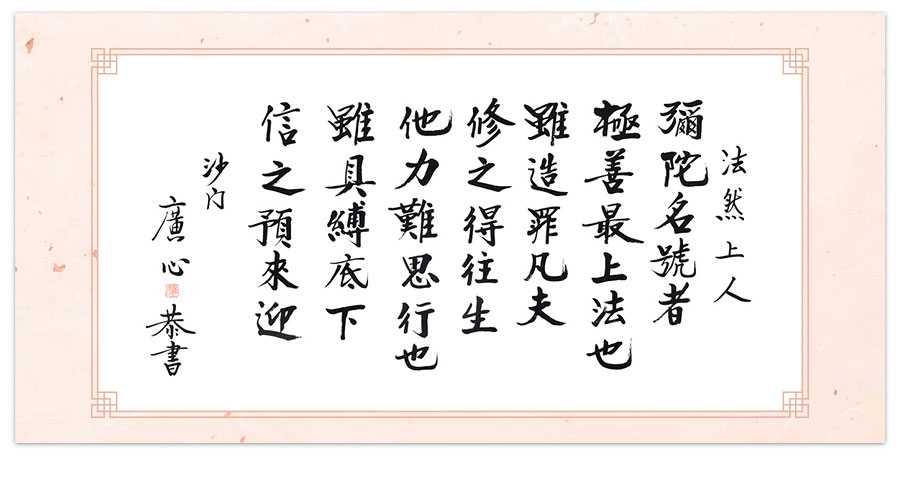 法然上人
彌陀名號者
極善最上法也
雖造罪凡夫
修之得往生
他力難思行也
雖具縛底下
信之預來迎
沙门
廣心
恭書